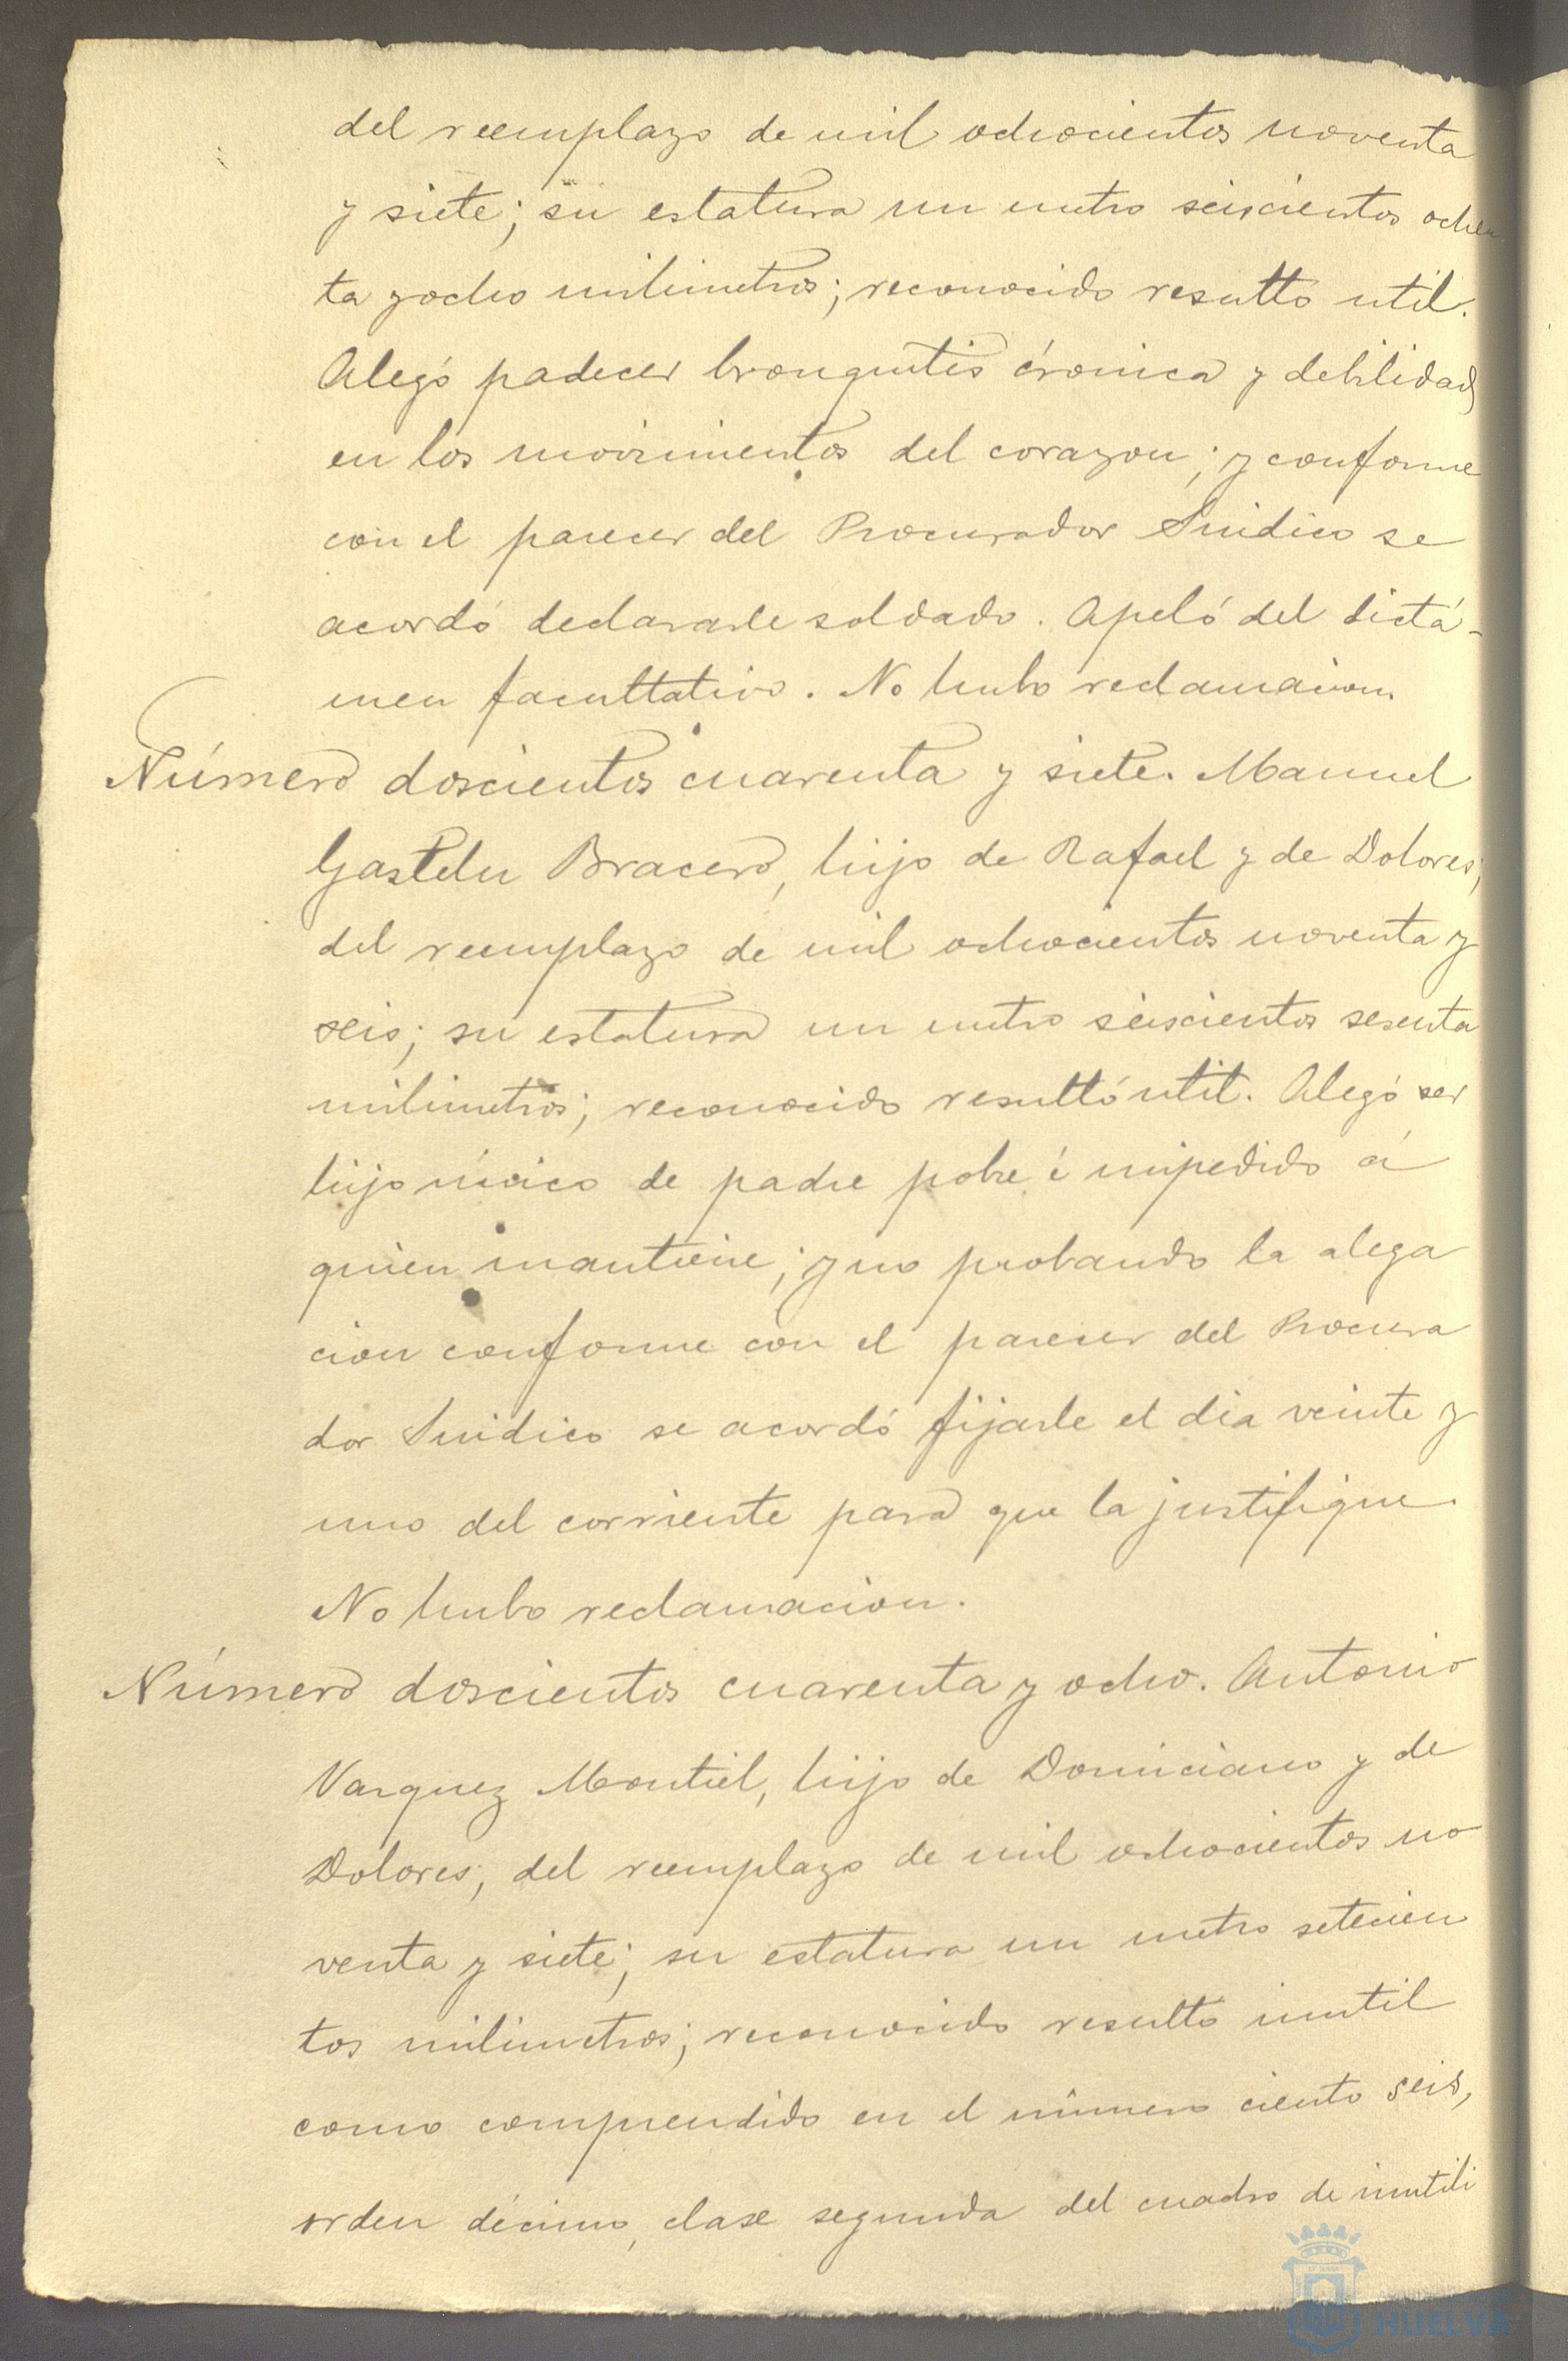 del reemplazo de mil ochocientos noventa
y siete; su estatura un metro seiscientos ochen
ta y ocho milimetros; reconocido resultó util.
Alegó padecer bronquitis crónica y debilidad
en los movimientos del corazon; y conforme
con el parecer del Procurador Sindico se
acordó declararle soldado. Apeló del dictá-
men facultativo. No hubo reclamacion.
Número doscientos cuarenta y siete. Manuel
Gastelu Bracero, hijo de Rafael y de Dolores;
del reemplazo de mil ochocientos noventa y
seis; su estatura un metro seiscientos sesenta
milimetros; reconocido resultó util. Alegó ser
hijo único de padre pobre é impedido á
quien mantiene; y no probando la alega
cion conforme con el parecer del Procura
dor Sindico se acordó fijarle el dia veinte y
uno del corriente para que la justifique.
No hubo reclamacion.
Número doscientos cuarenta y ocho. Antonio
Vazquez Montiel, hijo de Domiciano y de
Dolores; del reemplazo de mil ochocientos no
venta y siete; su estatura un metro setecien
tos milimetros; reconocido resultó inutil
como comprendido en el número ciento seis,
orden décimo, clase segunda del cuadro de inutili
HUELVA